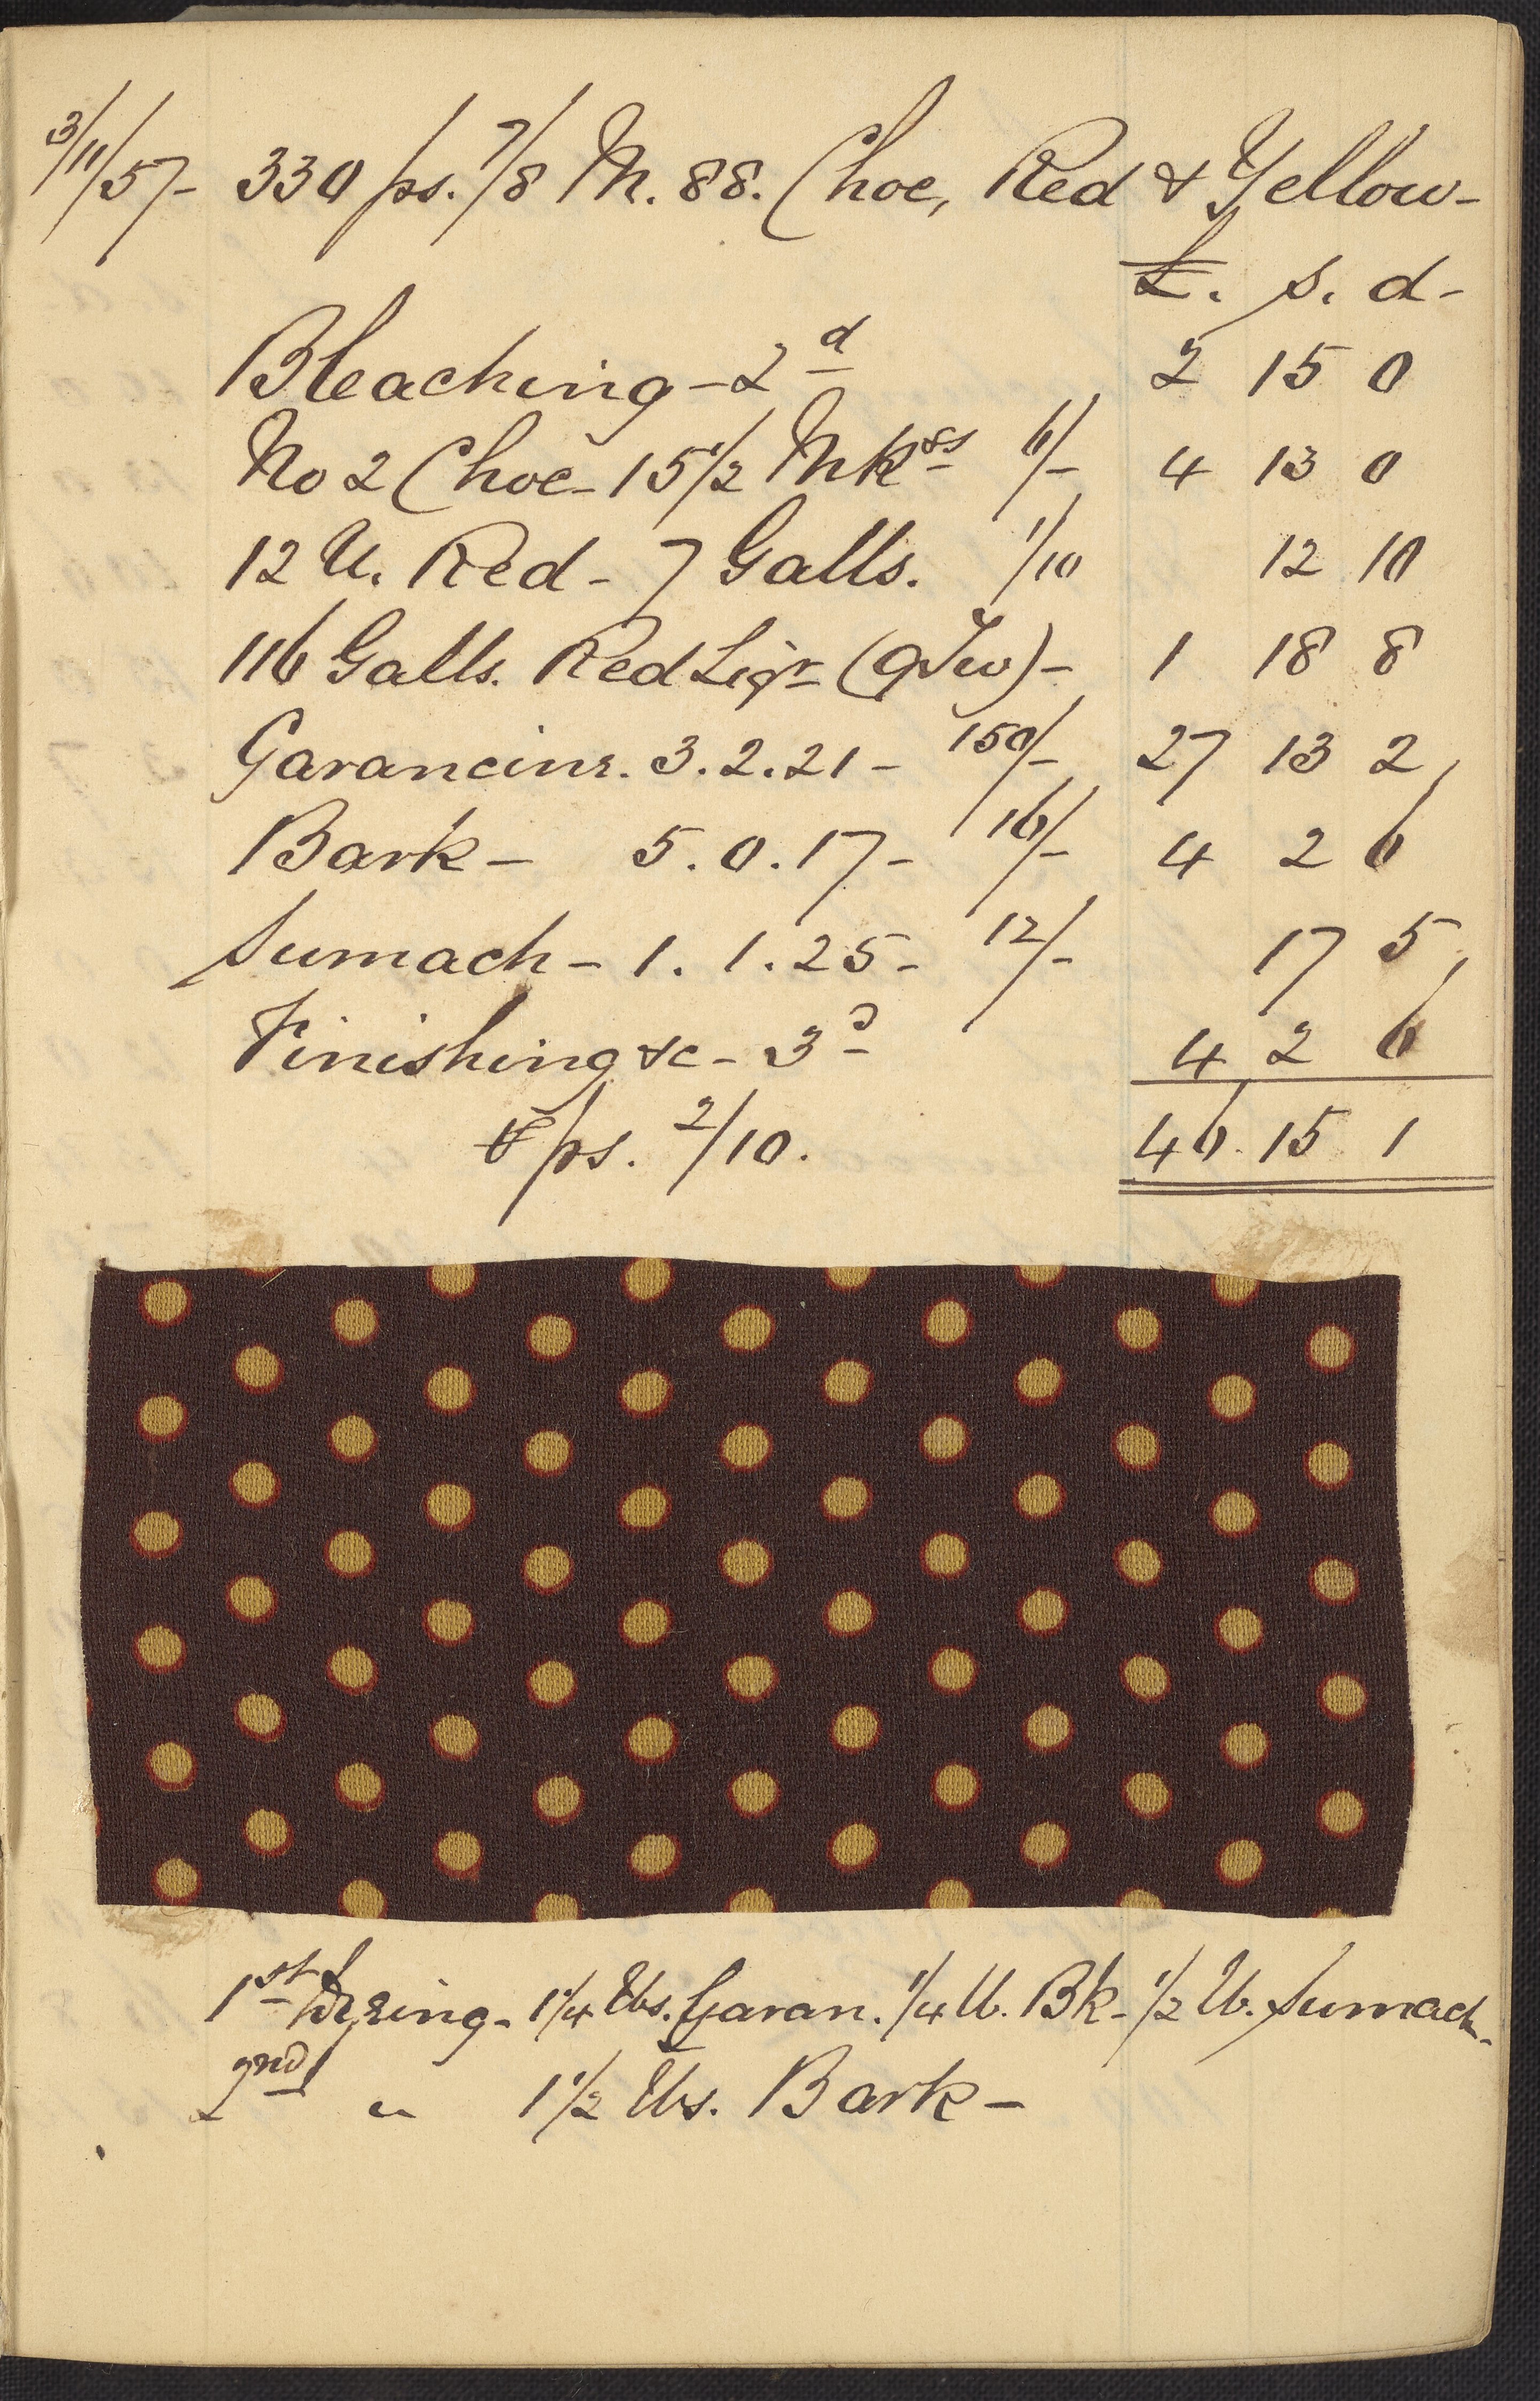 3/11/57- 330 ps. 7/8 M. 88. Choc, Red & Yellow-
£. s. d-
Bleaching - 2d 2 15 0
No 2 Choc- 15 1/2 Mkrs 6/- 4 13 0
12 U. Red - 7 Galls. 1/10 12 10
116 Galls. Red Liqr (9Tw) - 1 18 8
Garancine. 3.2.21 - 150/- 27 13 2
Bark - 5.0.17 - 16/- 4 2 6
Sumach - 1.1.25 - 12/- 17 5
Finishing &c - 3d 4 2 6
℔ ps. 2/10. 46. 15 1
1st Dyeing - 1 1/4 lbs. Garan. 1/4 lb. Bk - 1/2 lb. Sumach.
2nd " 1 1/2 lbs. Bark -